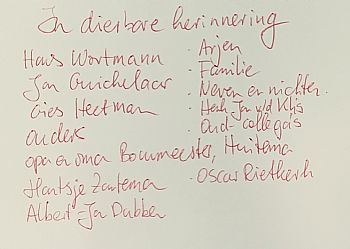 In dierbare herinnering
Hans Wortmann
Jan Guichelaar
Cies Heetman
ouders
opa en oma Bouwmeester, Huitema
Hantsje Zantema
Albert-Jan Dubben
- Arjen
- Familie
- Neven en nichten.
- Herh. Jan v/d Klis
- Oud-collega's
- Oscar Rietkerk